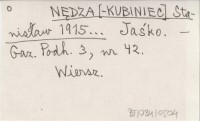 NĘDZA [-KUBINIEC] Sta-
nisław 1915... Jaśko. —
Gaz. Podh. 3, nr 42.
Wiersz.